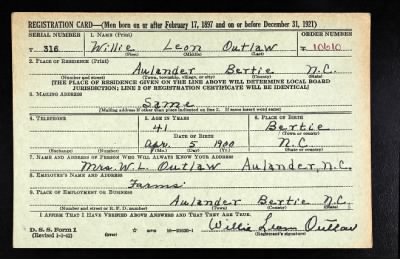 REGISTRATION CARD—(Men born on or after February 17, 1897 and on or before December 31, 1921)
SERIAL NUMBER 1. NAME (Print) ORDER NUMBER
T 316 Willie Leon Outlaw T 10610
(First) (Middle) (Last)
2. PLACE OF RESIDENCE (Print)
Aulander Bertie N.C.
(Number and street) (Town, township, village, or city) (County) (State)
[THE PLACE OF RESIDENCE GIVEN ON THE LINE ABOVE WILL DETERMINE LOCAL BOARD
JURISDICTION; LINE 2 OF REGISTRATION CERTIFICATE WILL BE IDENTICAL]
3. MAILING ADDRESS
Same
[Mailing address if other than place indicated on line 2. If same insert word same]
4. TELEPHONE 5. AGE IN YEARS 6. PLACE OF BIRTH
41 Bertie
DATE OF BIRTH (Town or county)
Apr. 5 1900 N.C.
(Exchange) (Number) (Mo.) (Day) (Yr.) (State or country)
7. NAME AND ADDRESS OF PERSON WHO WILL ALWAYS KNOW YOUR ADDRESS
Mrs. W. L. Outlaw Aulander, N.C.
8. EMPLOYER'S NAME AND ADDRESS
Farms
9. PLACE OF EMPLOYMENT OR BUSINESS
Aulander Bertie N.C.
(Number and street or R. F. D. number) (Town) (County) (State)
I AFFIRM THAT I HAVE VERIFIED ABOVE ANSWERS AND THAT THEY ARE TRUE.
D. S. S. Form 1 Willie Leon Outlaw
(Revised 1-1-42) (over) (Registrant's signature)